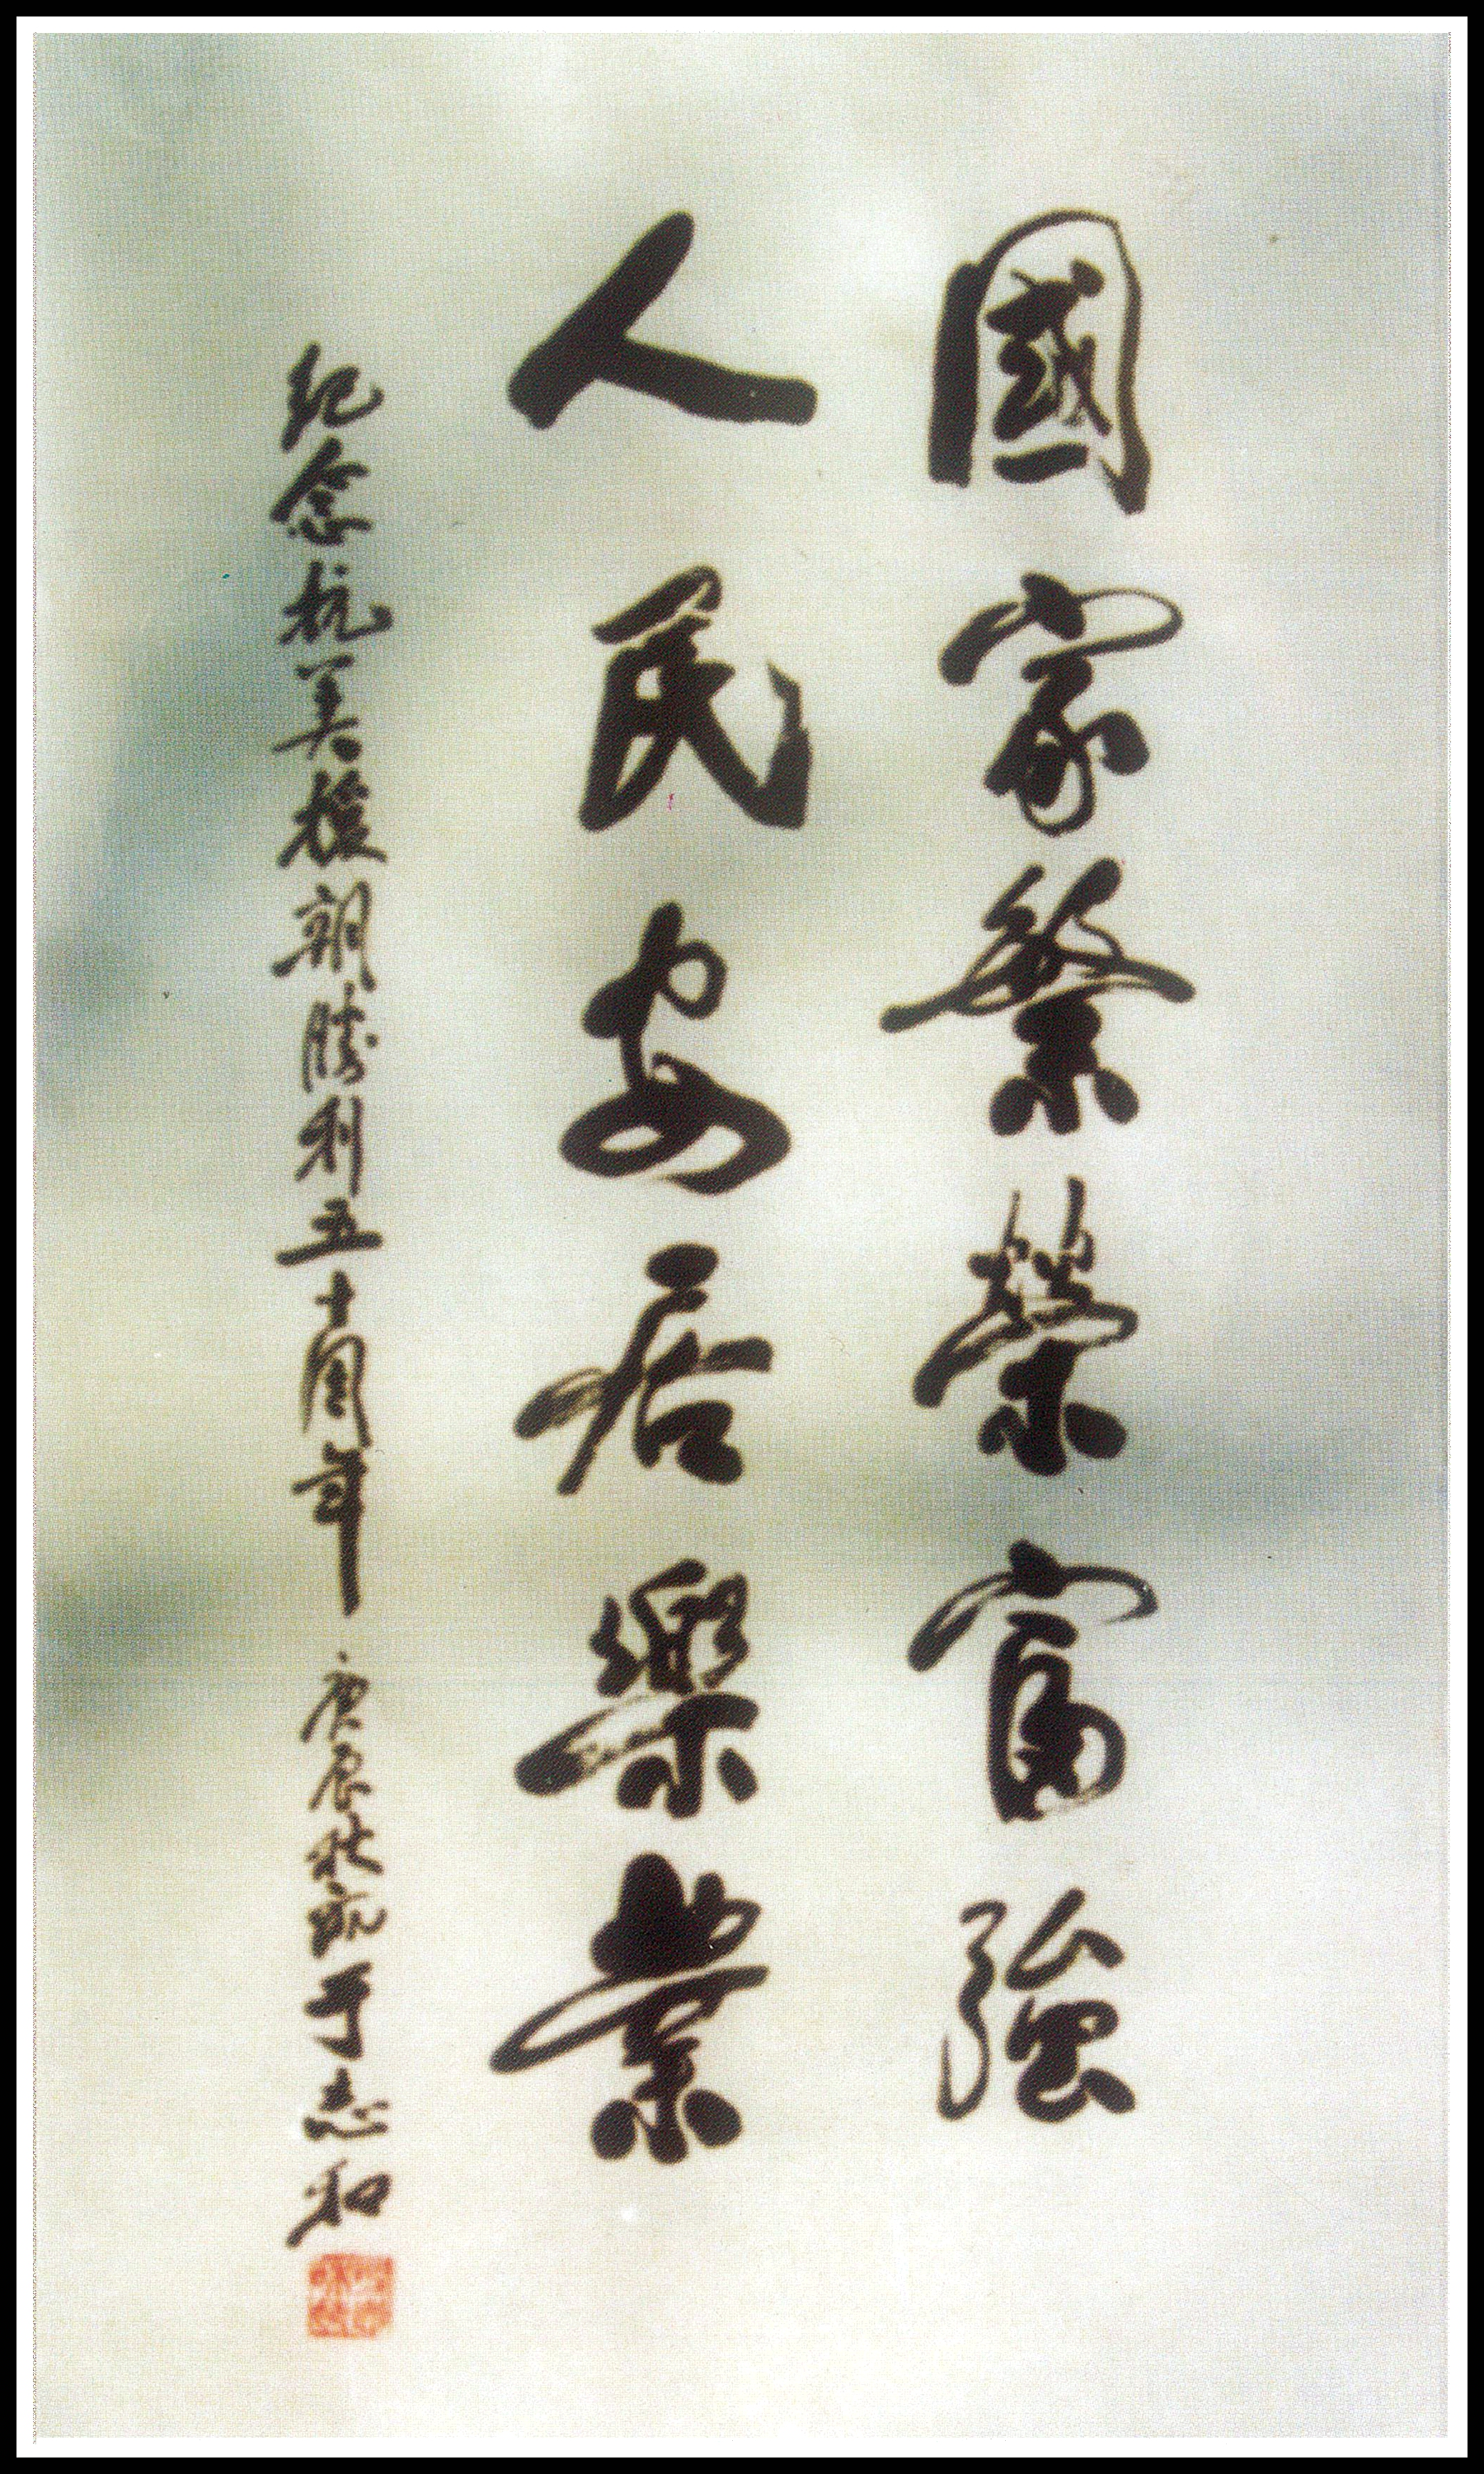 國家繁榮富強
人民安居樂業
紀念抗美援朝勝利五十周年 庚辰秋 于志和